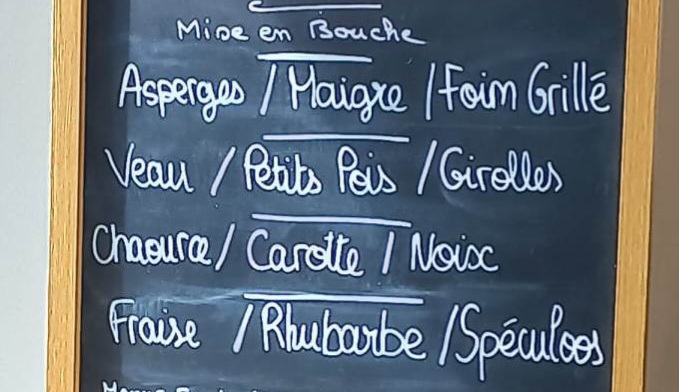 Mise en Bouche
Asperges / Maigre / Foin Grillé
Veau / Petits Pois / Girolles
Chaource / Carotte / Noix
Fraise / Rhubarbe / Spéculoos